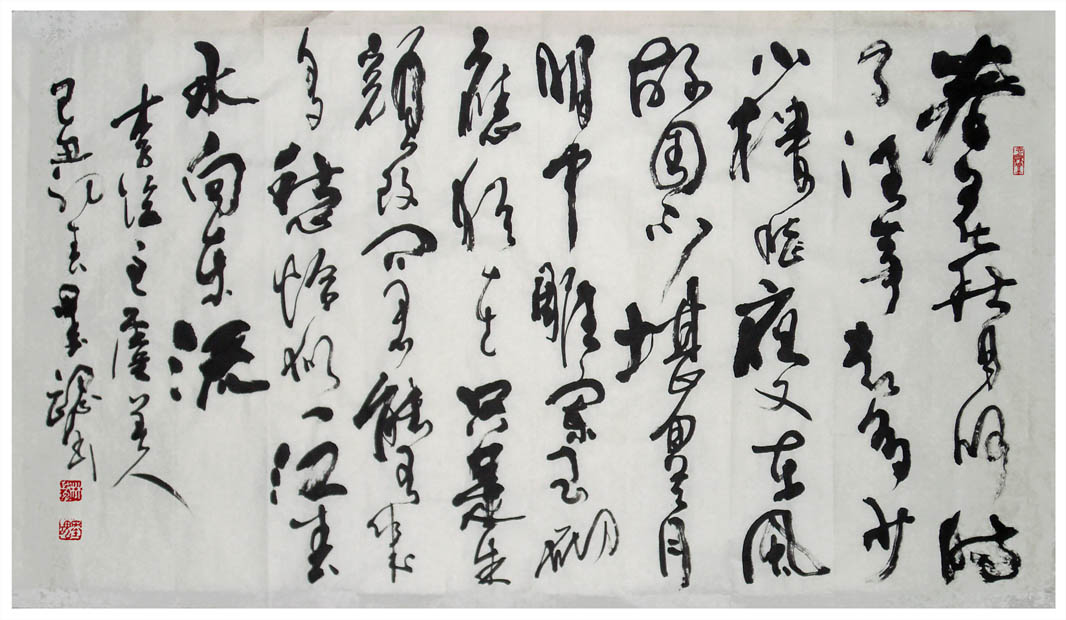 春花秋月何時
了往事知多少
小樓昨夜又東風
故國不堪回首月
明中雕闌玉砌
應猶在只是朱
顏改問君能有幾
多愁恰似一江春
水向東流
李後主虞美人
己丑初春